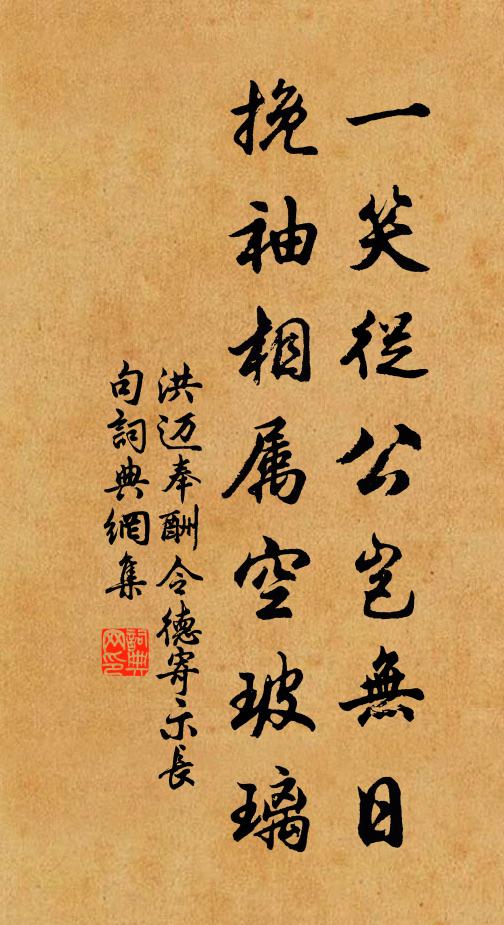 一笑從公豈無日
挽袖相属空玻璃
洪迈奉酬令德寄示長
句詞典網集
詞典网印